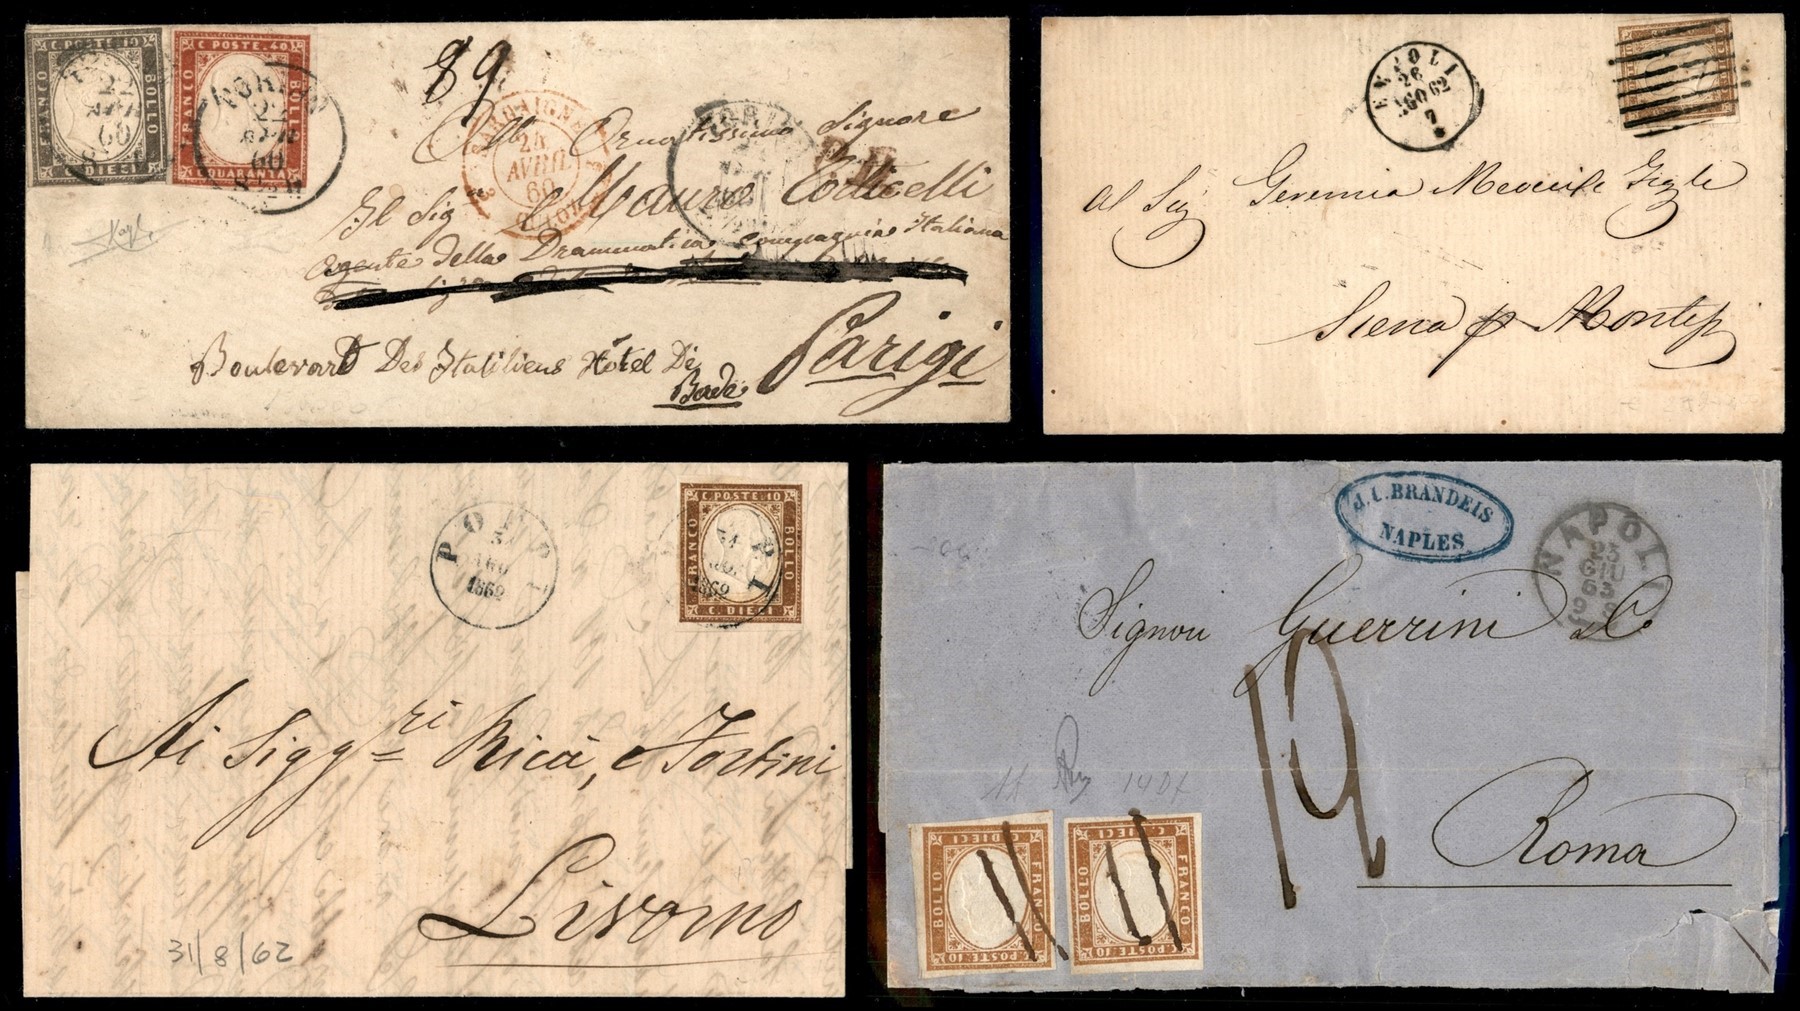 C. POSTE. 10
FRANCO
BOLLO
C. DIECI
C. POSTE. 40
FRANCO
BOLLO
C. QUARANTA
TORINO
22
APR
60
TORINO
22
APR
60
89
SARDAIGNE
24
AVRIL
60
P.D.
All' Ornatissimo Signore
Il Sig Mauro Corticelli
Agente della Drammatica Compagnia Italiana
Boulevard Des Italiliens Hôtel De
Bade
Parigi
EMPOLI
26
AGO 62
7
Al Sig Geremia
Siena p Montep
POPPI
31
AGO
1862
C. POSTE. 10
FRANCO
BOLLO
C. DIECI
31
AGO
1862
Ai Siggri Ricci, e Fortini
Livorno
31/8/62
J. C. BRANDEIS
NAPLES
NAPOLI
23
GIU
63
Signori Guerrini & C.
12
Roma
C. DIECI
BOLLO
FRANCO
C. POSTE. 10
C. DIECI
BOLLO
FRANCO
C. POSTE. 10